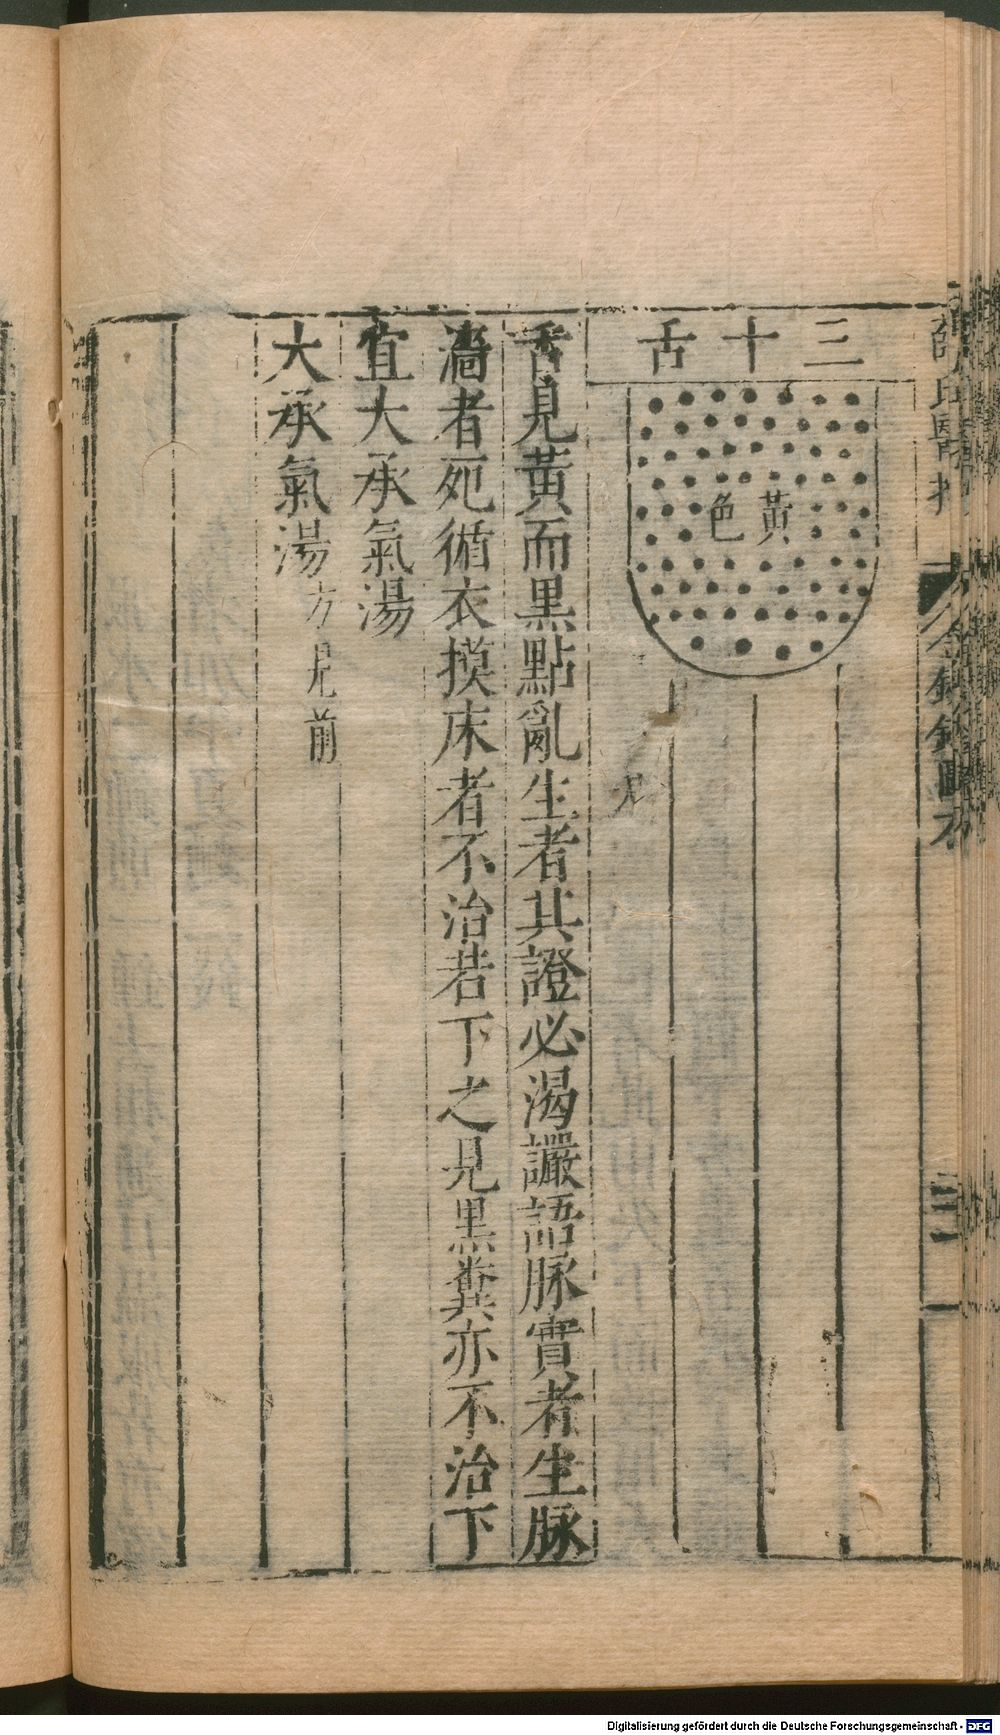 三十舌
黃色
舌見黃而黒點亂生者其證必渴讝語脉實者生脉
濇者死循衣摸床者不治若下之見黒糞亦不治下
宜大承氣湯
大承氣湯方見前
金鏡錄圖本
Digitalisierung gefördert durch die Deutsche Forschungsgemeinschaft - DFG